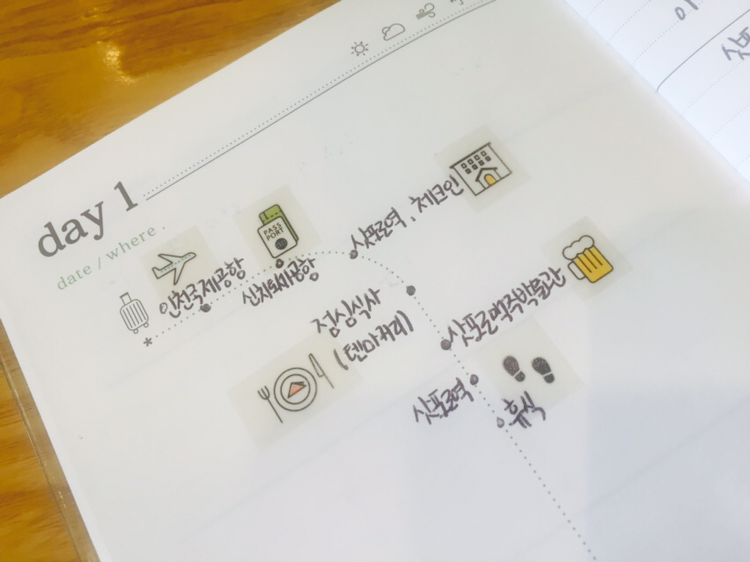 day 1
date / where .
인천국제공항
PASS
PORT
신치토세공항
삿포로역 . 체크인
점심식사
(텐마카리)
삿포로맥주박물관
삿포로역
휴식